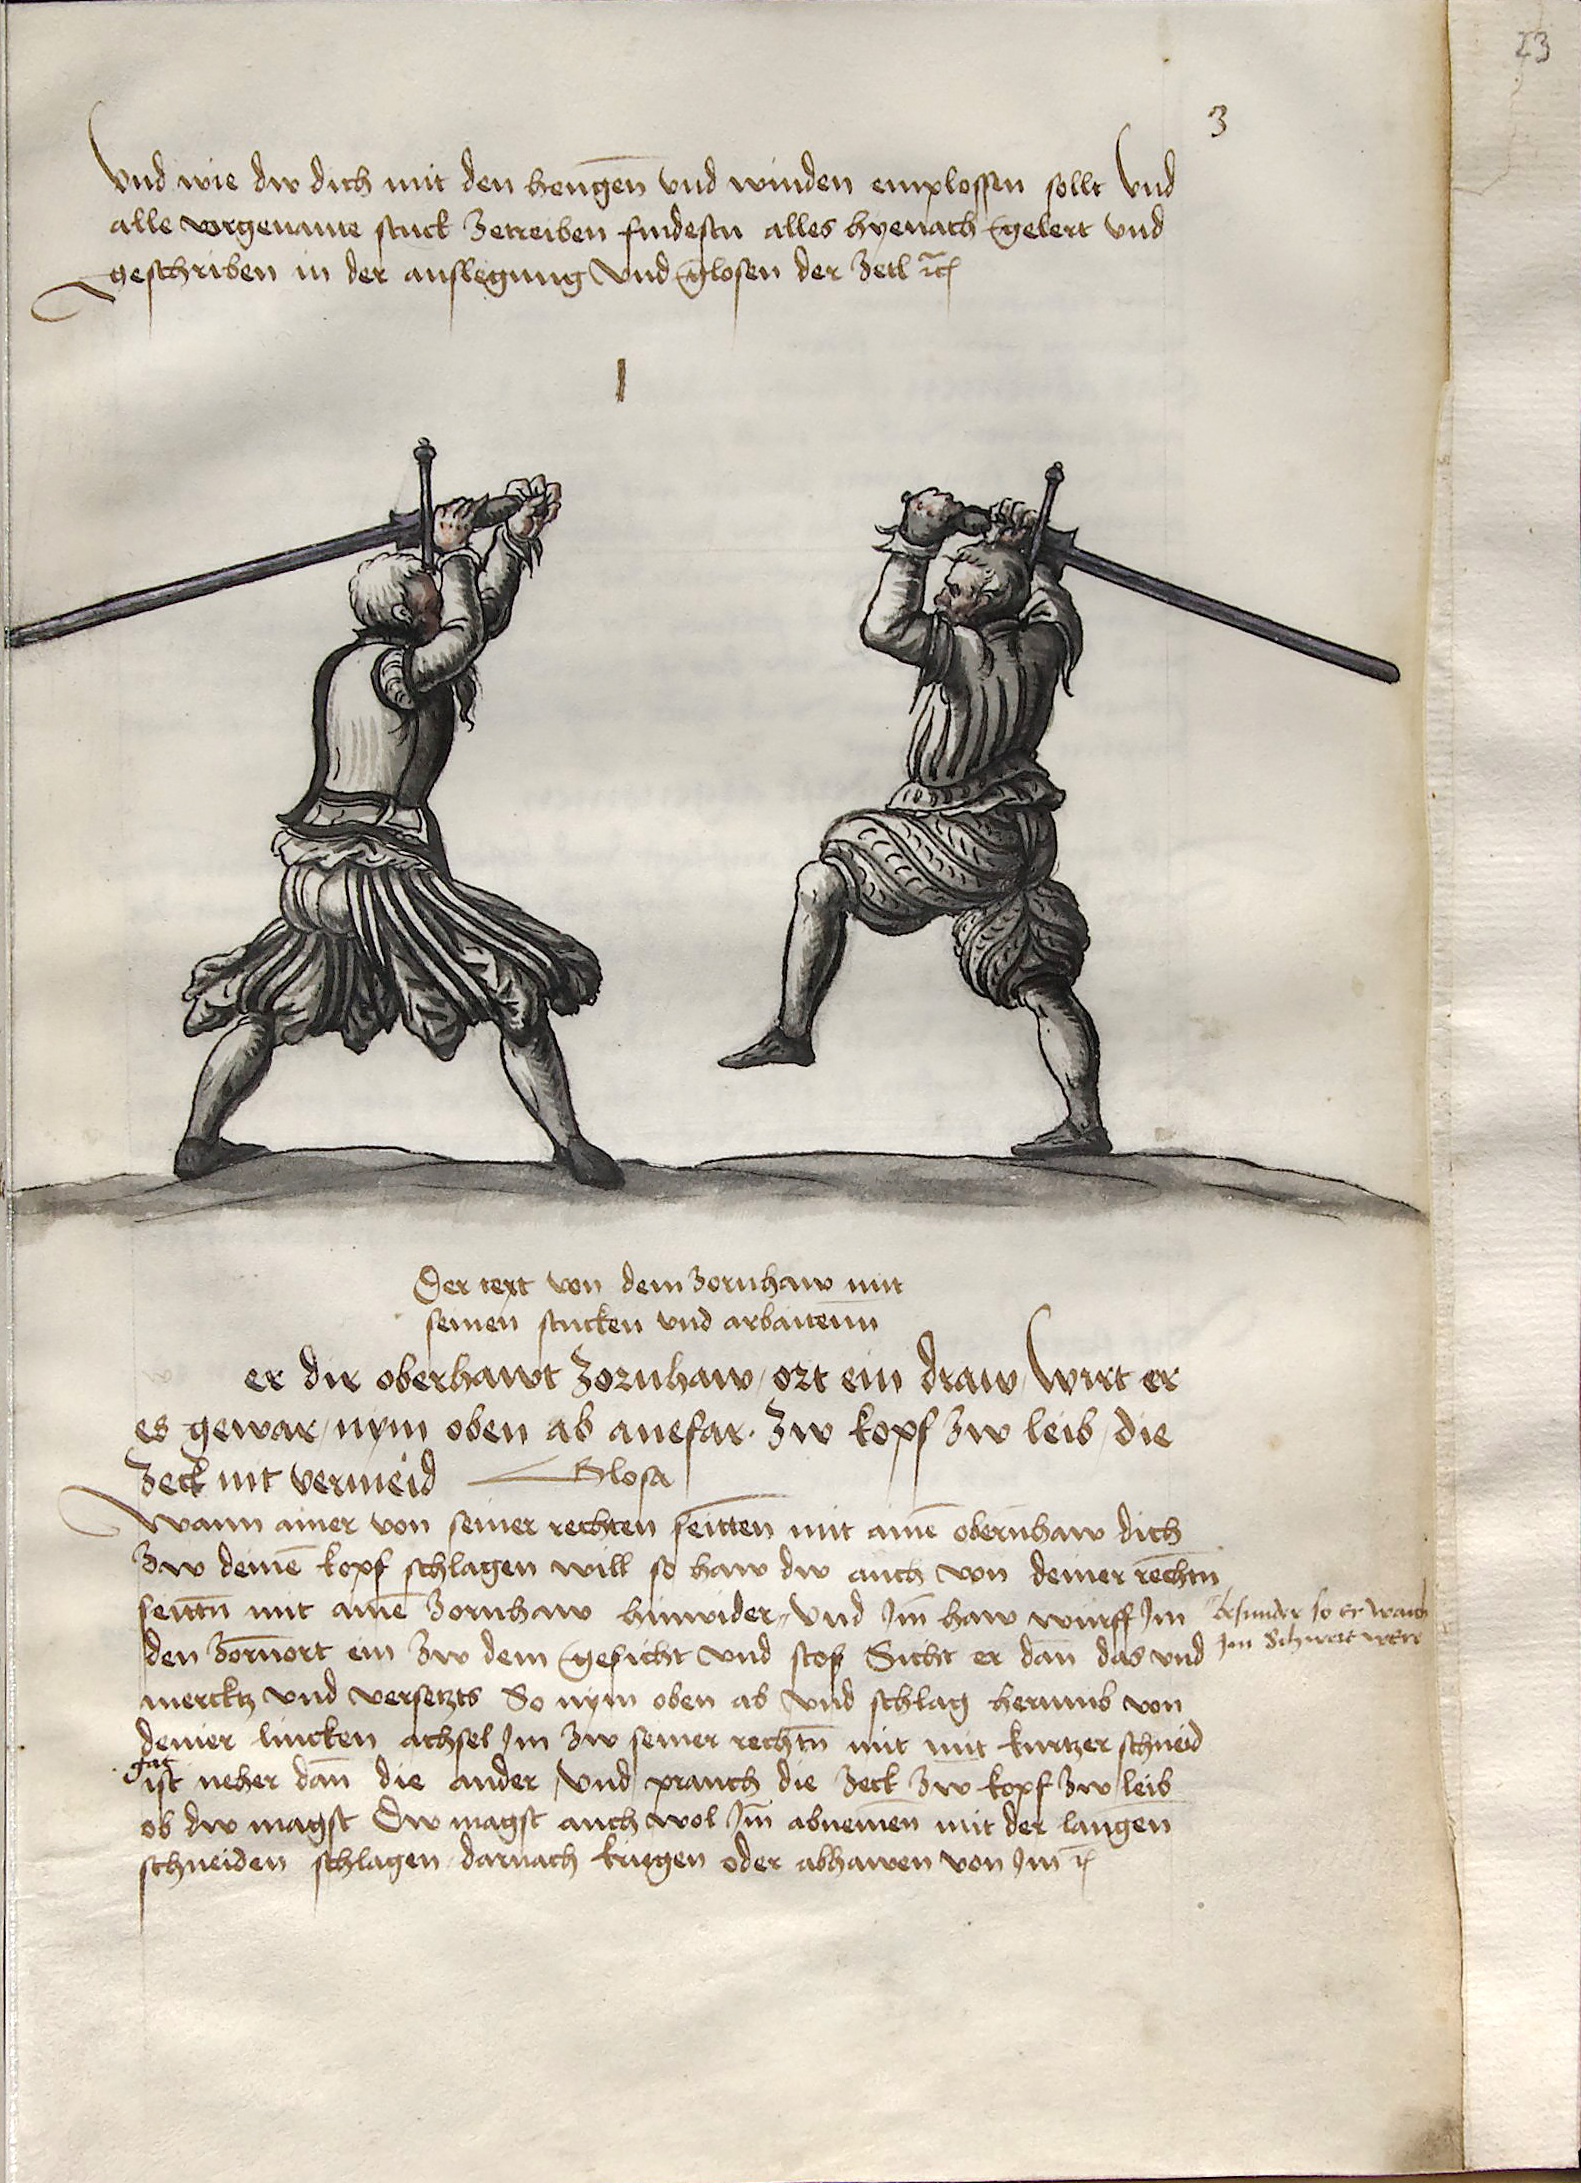 23
3
Vnd wie dw dich mit den hengen̄ vnd winden emplossen sollt Vnd
alle vorgenante stuck zetreiben findestu alles hyenach gelert vnd
geschriben in der auslegung Vnd glosen der zetl
I
Der text von dem Zornhaw mit
seinen stucken vnd arbaitenn
er dir oberhawt Zornhaw / ort ein draw / Wirt er
es gewar / nym oben ab anefar. Zw kopf Zw leib / die
Zeck nit vermeid Glosa
Wann ainer von seiner rechten seitten mit aine̅ obernhaw dich
Zw deine̅ kopf schlagen will so haw dw auch von deiner rechtn̄
seittn̄ mit aine̅ Zornhaw hinwider / Vnd Im̄ haw würff Im besunder so er waich
den Zornort ein Zw dem gesicht vnd stos Sicht er dan̄ das vnd Im Schwert wer
mercktz vnd versetzts So nym oben ab vnd schlag herumb von
deiner lincken achsel Im Zw seiner rechtn̄ mit mit kurtzer schneid
ist neher dan̄ die ander / Vnd prauch die Zeck Zw kopf Zw leib
ob dw magst Dw magst auch wol Im̄ abnemen̄ mit der langen
schneiden schlagen / darnach kriegen oder abhawen von Im